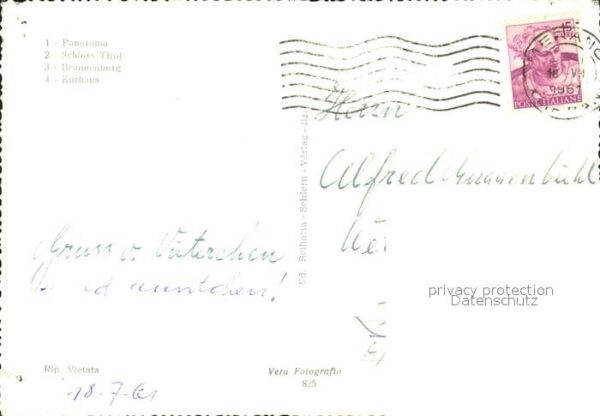 1 - Panorama
2 - Schloss Tirol
3 - Brannenburg
4 - Kurhaus
15
MERANO
18 VII
1961
POSTE ITALIANE
Herrn
Alfred Guggenbühl
Gruss v. Väterchen
Ed. Seilharia - Schlern - Verlag - Bz.
privacy protection
Datenschutz
Rip. Vietata
Vera Fotografia
825
18-7-61